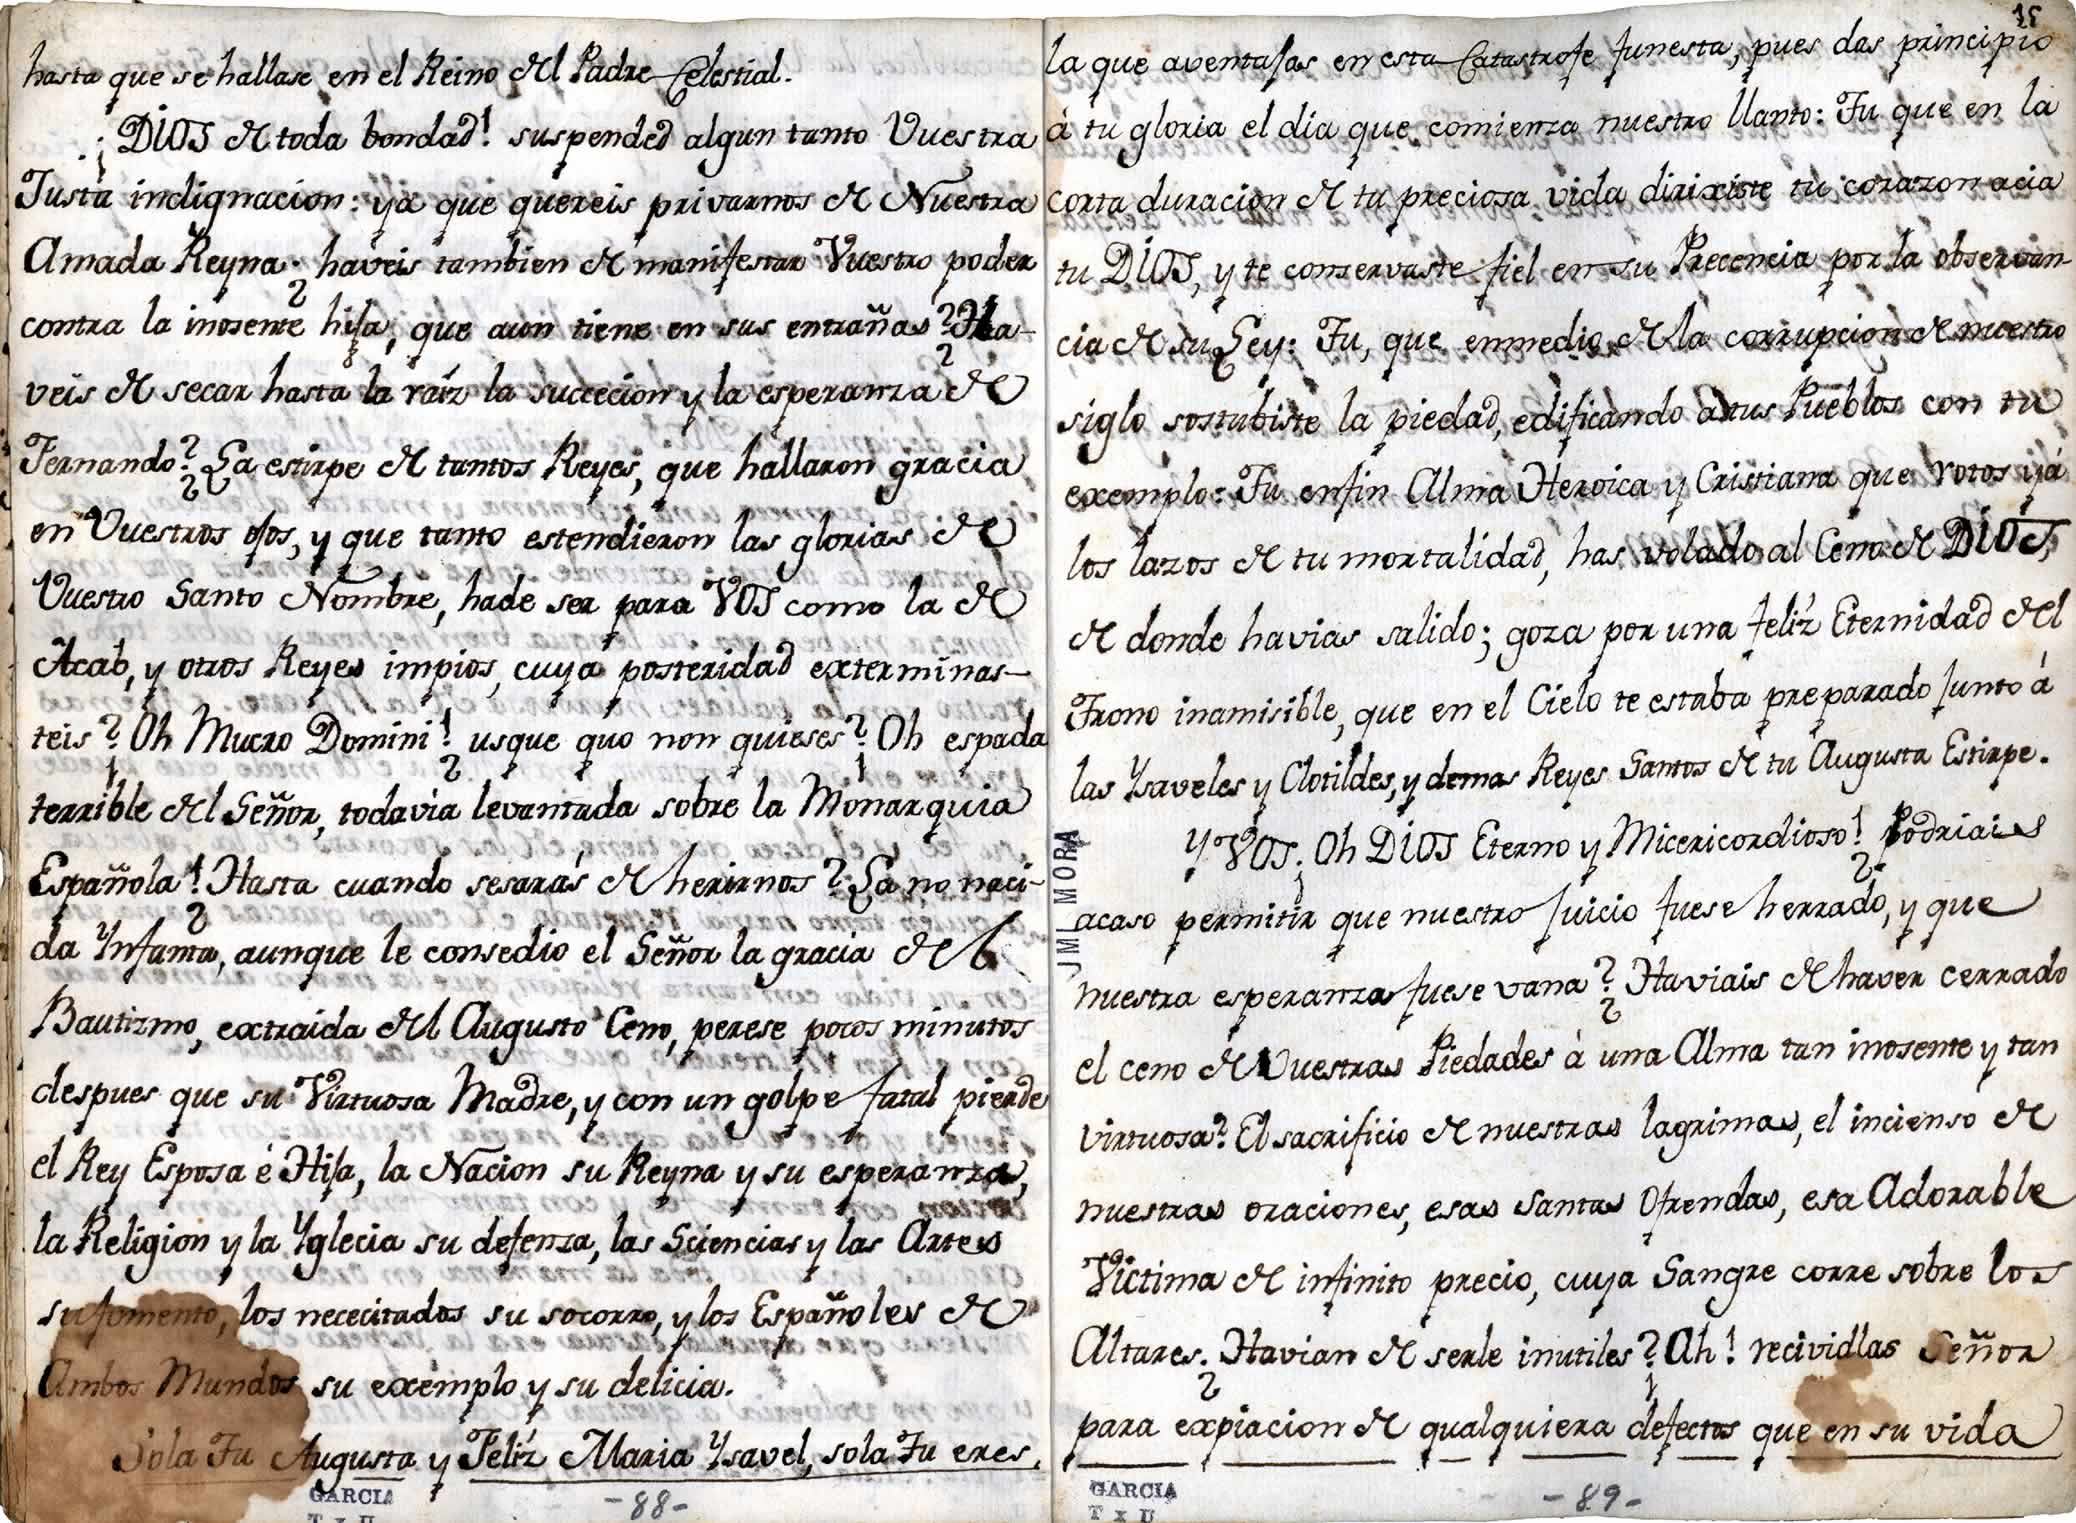 hasta que se hallase en el Reino del Padre Celestial.
¡DIOS de toda bondad! suspended algun tanto Vuestra
Justa indignacion: yá que quereis privarnos de Nuestra
Amada Reyna. ¿haveis tambien de manifestar Vuestro poder
contra la inosente hija, que aun tiene en sus entrañas? ¿Ha-
veis de secar hasta la raíz la succecion y la esperanza de
Fernando? ¿La estirpe de tantos Reyes, que hallaron gracia
en Vuestros ojos, y que tanto estendieron las glorias de
Vuestro Santo Nombre, hade ser para VOS como la de
Acab, y otros Reyes impios, cuya posteridad exterminas-
teis? ¡Oh Mucro Domini! ¿usque quo non quieses? ¡Oh espada
terrible del Señor, todavia levantada sobre la Monarquia
Española! ¿Hasta cuando sesarás de herirnos? La no naci-
da Ynfanta, aunque le consedio el Señor la gracia del
Bautizmo, extraida del Augusto Ceno, perese pocos minutos
despues que su Virtuosa Madre, y con un golpe fatal pierde
el Rey Esposa é Hija, la Nacion su Reyna y su esperanza,
la Religion y la Yglecia su defenza, las Sciencias y las Artes
su fomento, los nececitados su socorro, y los Españoles de
Ambos Mundos su exemplo y su delicia.
Sola Tu Augusta y Feliz Maria Ysavel, sola Tu eres,
GARCIA
T x U
-88-
15
la que aventajas en esta Catastrofe funesta, pues das principio
á tu gloria el dia que comienza nuestro llanto: Tu que en la
corta duracion de tu preciosa vida dirixiste tu corazon acia
tu DIOS, y te conservaste fiel en su Precencia por la observan-
cia de su Ley: Tu, que enmedio de la corrupcion de nuestro
siglo sostubiste la piedad, edificando a tus Pueblos con tu
exemplo: Tu enfin Alma Heroica y Cristiana que rotos yá
los lazos de tu mortalidad, has volado al Ceno de DIOS,
de donde havias salido; goza por una feliz Eternidad del
Trono inamisible, que en el Cielo te estaba preparado junto á
las Ysaveles y Clotildes, y demas Reyes Santos de tu Augusta Estirpe.
Y VOS, ¡Oh DIOS Eterno y Micericordioso! ¿Podriais
acaso permitir que nuestro juicio fuese herrado, y que
nuestra esperanza fuese vana? ¿Haviais de haver cerrado
el ceno de Vuestras Piedades á una Alma tan inosente y tan
virtuosa? El sacrificio de nuestras lagrimas, el incienso de
nuestras oraciones, esas santas Ofrendas, esa Adorable
Victima de infinito precio, cuya Sangre corre sobre los
Altares. ¿Havian de serle inutiles? ¡Ah! recividlas Señor
para expiacion de qualquiera defectos que en su vida
JMI MORA
GARCIA
T x U
-89-